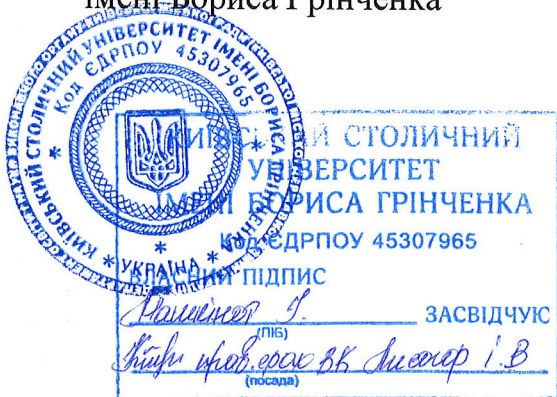 імені Бориса Грінченка
КИЇВСЬКИЙ СТОЛИЧНИЙ УНІВЕРСИТЕТ ІМЕНІ БОРИСА ГРІНЧЕНКА
Код ЄДРПОУ 45307965
* УКРАЇНА *
КИЇВСЬКИЙ СТОЛИЧНИЙ
УНІВЕРСИТЕТ
ІМЕНІ БОРИСА ГРІНЧЕНКА
Код ЄДРПОУ 45307965
ВЛАСНИЙ ПІДПИС
ЗАСВІДЧУЮ
(ПІБ)
ВК І.В
(посада)